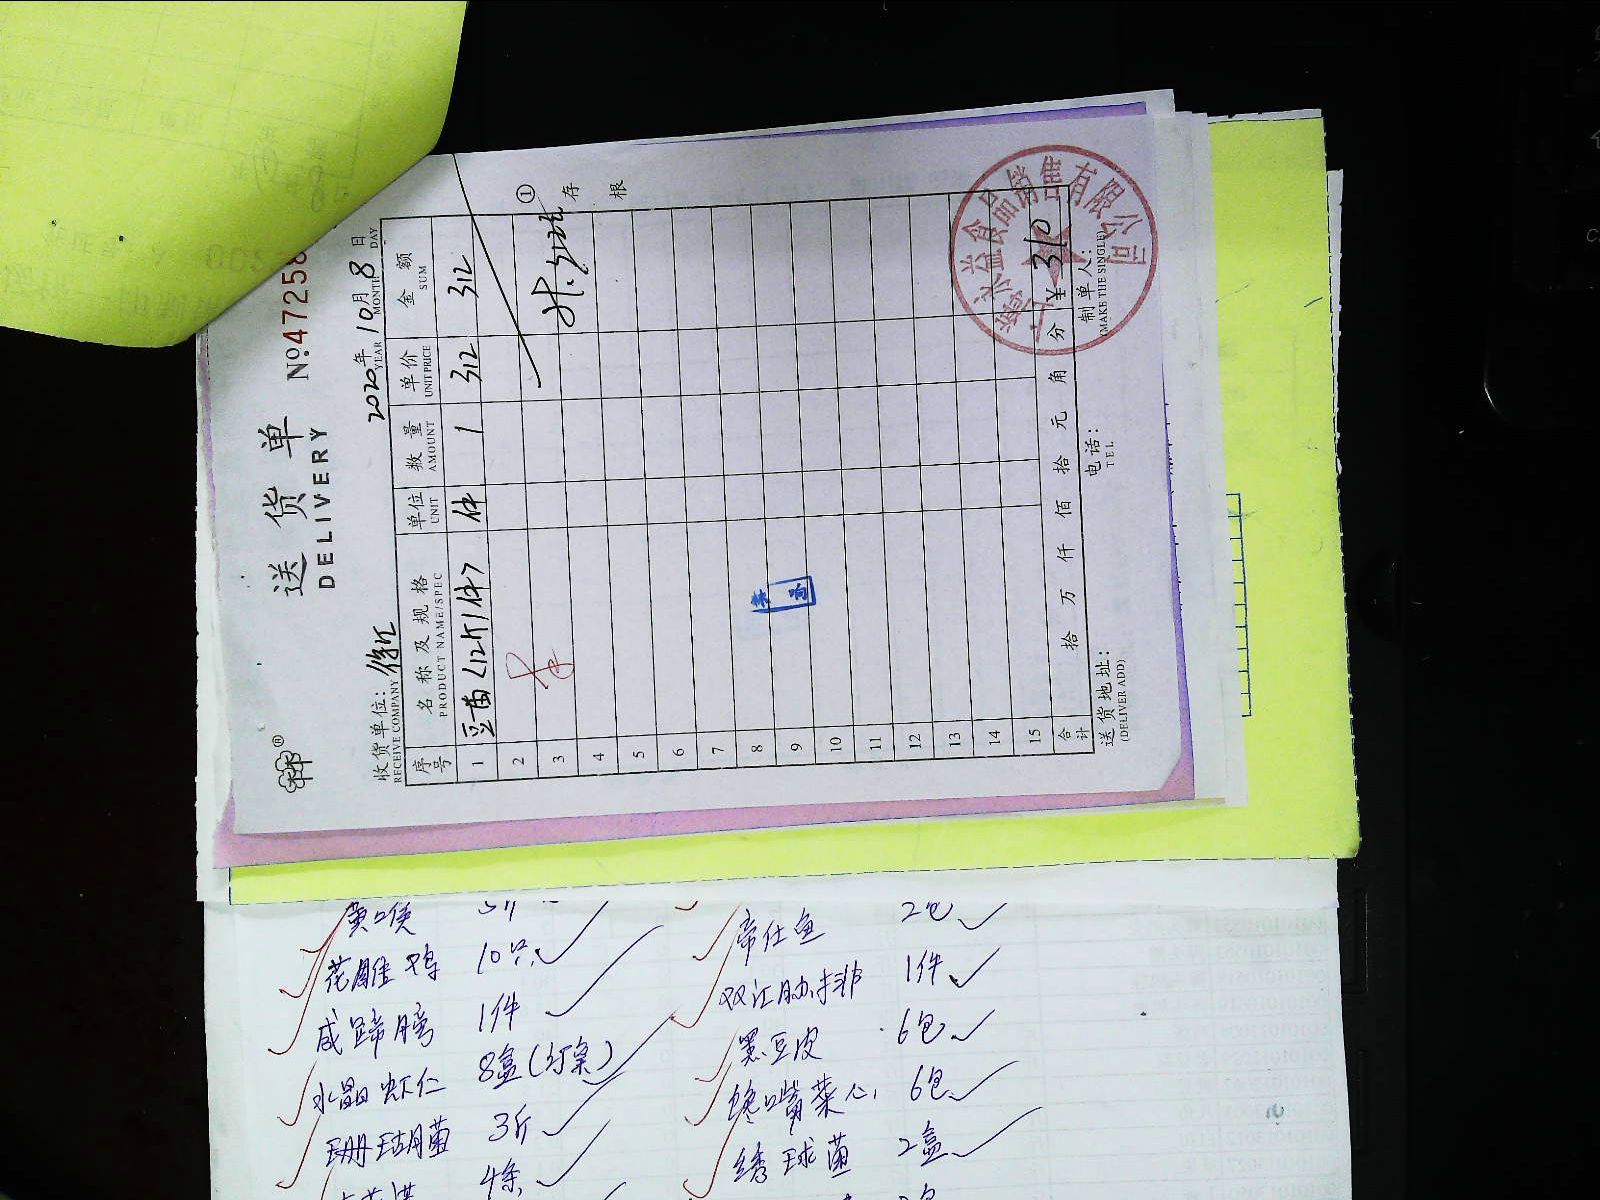 送货单
DELIVERY
No.47258
收货单位: 徐汇
RECEIVE COMPANY
2020年10月8日
YEAR MONTH DAY
序号 名称及规格 单位 数量 单价 金额
PRODUCT NAME/SPEC UNIT AMOUNT UNIT PRICE SUM
1 豆苗(12斤1件) 件 1 312 312
2
3
4
5
6
7
8
9
10
11
12
13
14
15
合计 拾 万 仟 佰 拾 元 角 分 ¥310
送货地址: 电话: 制单人:
(DELIVER ADD) TEL (MAKE THE SINGLE)
①存根
上海 益食品销售有限公司
黄喉
花雕鸡 10只
咸蹄膀 1件
水晶虾仁 8盒
珊瑚菌 3斤
4条
帝仕鱼 2包
双汇肋排 1件
黑豆皮 6包
馋嘴菜心 6包
绣球菌 2盒